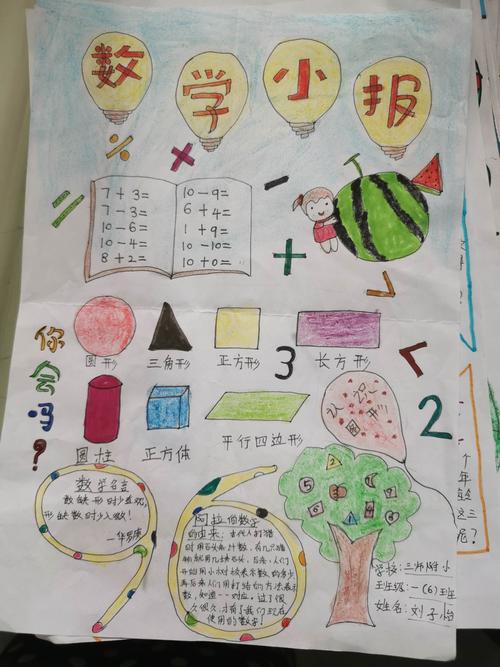 数学小报
7+3=
7-3=
10-6=
10-4=
8+2=
10-9=
6+4=
1+9=
10-10=
10+0=
你会吗?
圆形
三角形
正方形
长方形
3
2
圆柱
正方体
平行四边形
认识
图形
数学名言
数缺形时少直观,
形缺数时少入微!
—华罗庚
阿拉伯数字
的由来:古代人打猎
时用石头来计数,有几只猎
物就用几块石头,后来,人们
开始用小树枝来表示数的多少
再后来人们用打结的方法表示
数,知道一一对应。过了很
久很久,才有了我们现在
使用的数字!
学校:三师附小
班级:一(6)班
姓名:刘子怡